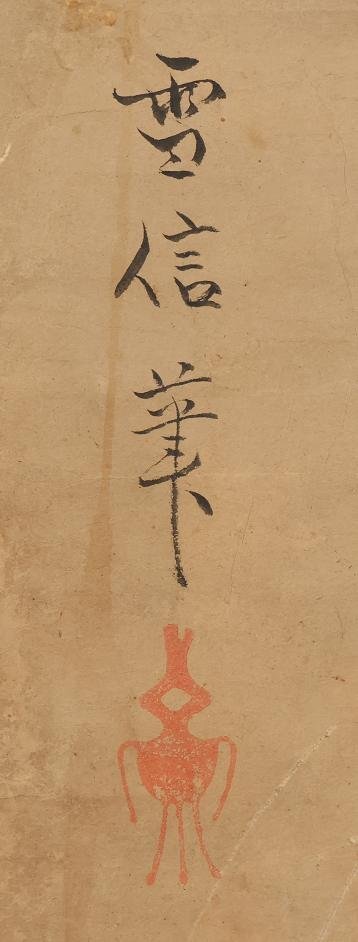 雪信筆